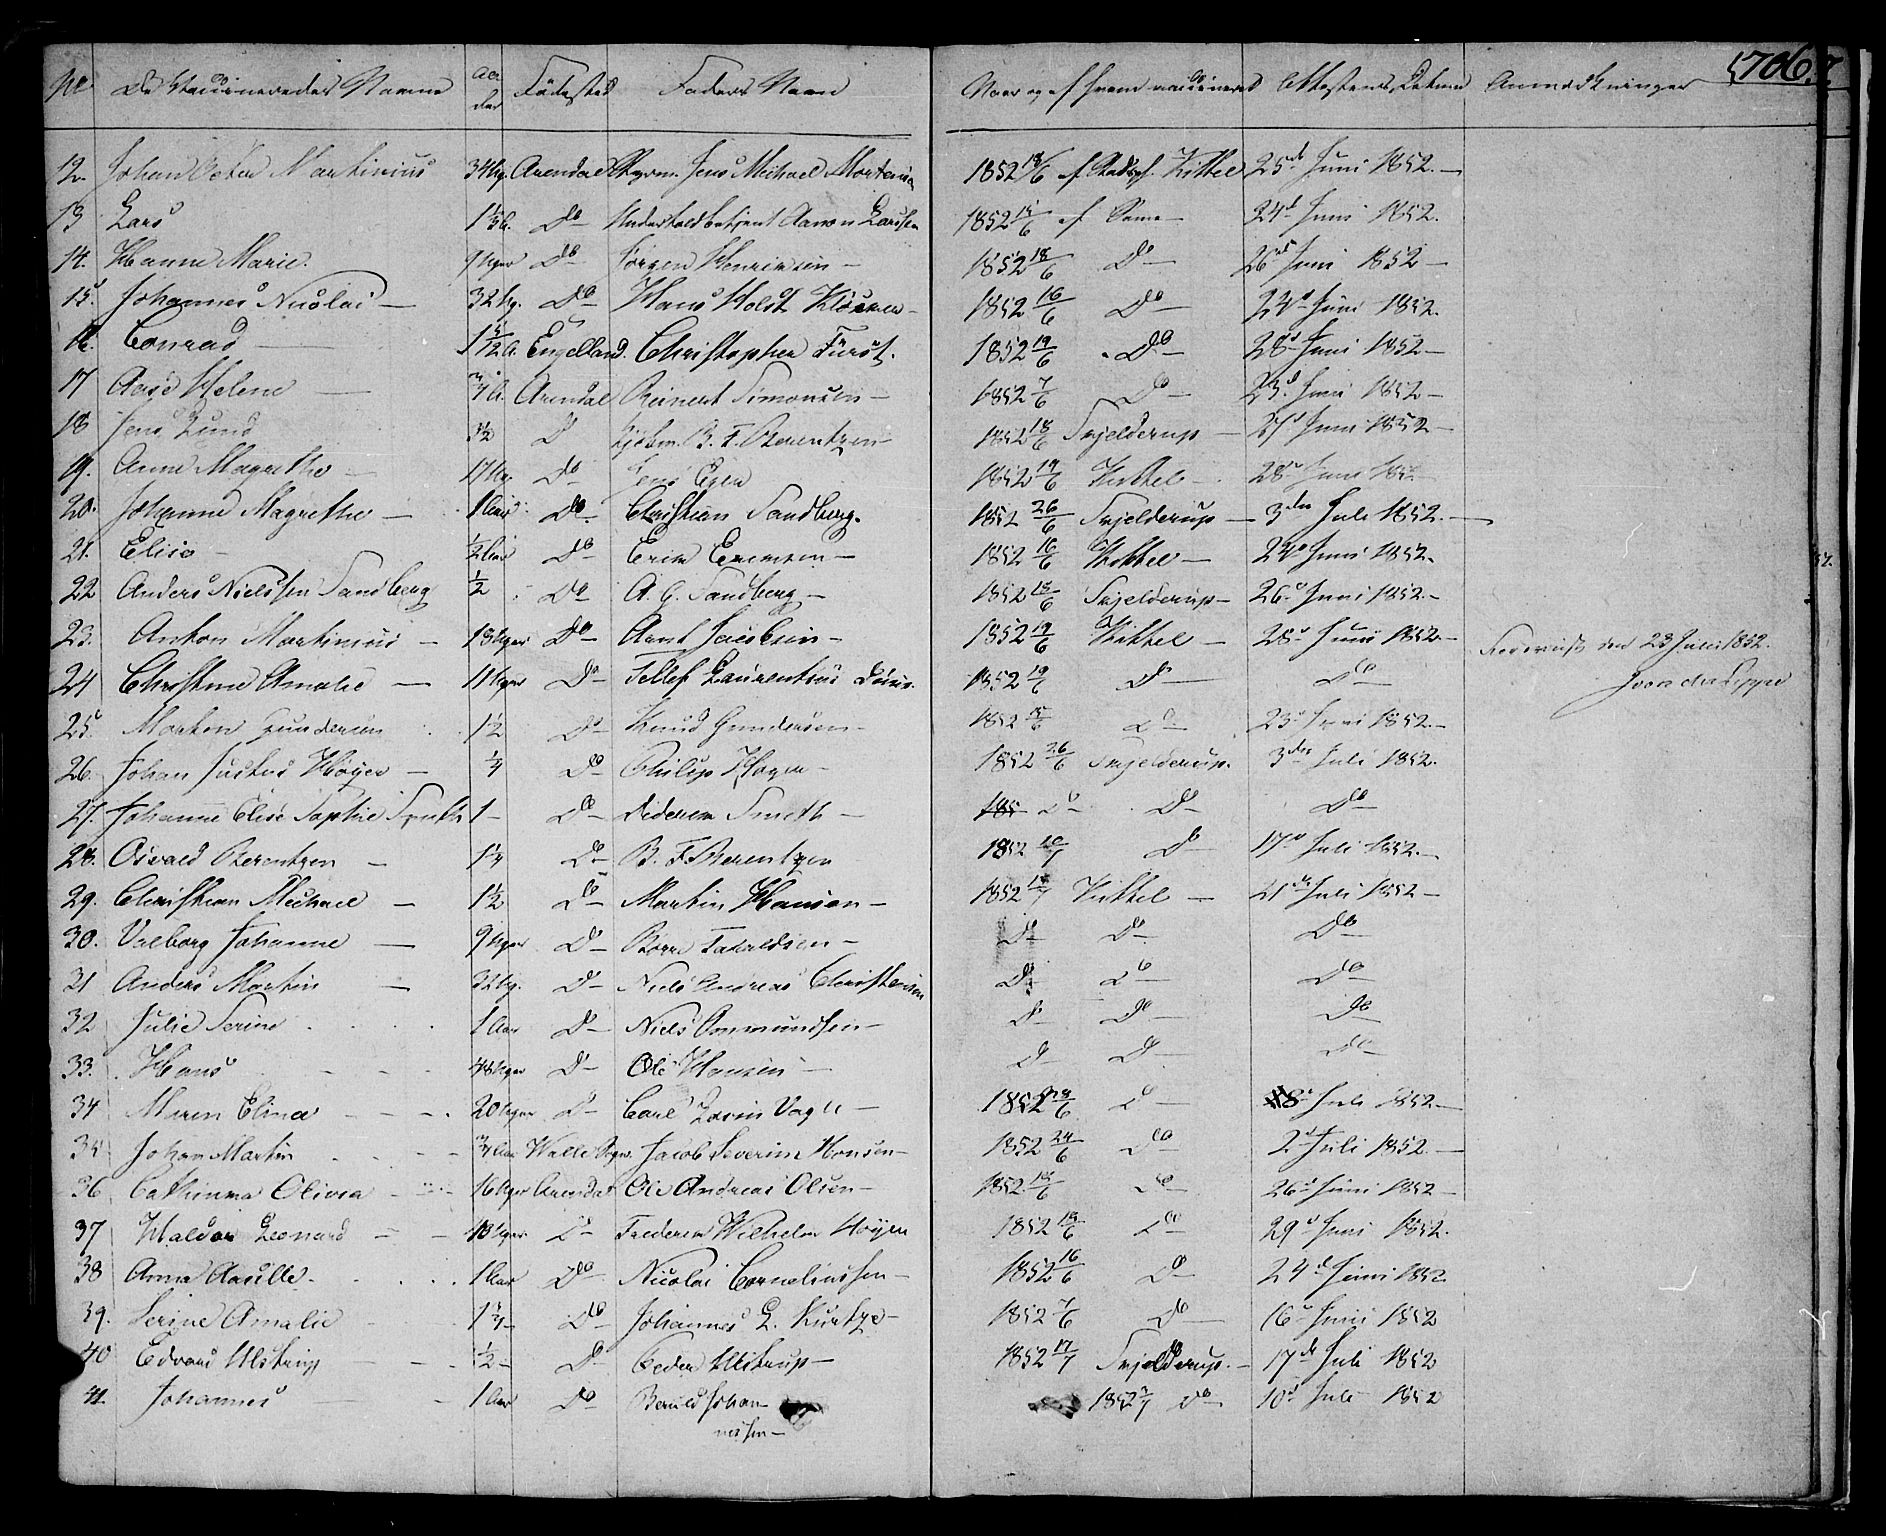 706.
No De Vaccineredes Navne Alder Fødested Faders Navn Naar og af hvem vaccineret Attestens Datum Anmærkninger
12. Johan Peter Martinius 34 Ug. Arendal Jens Michael Mortensen 1852 18/6 af Kittel 25de Juni 1852.
13 Lars Do Aanon Larssen 1852 15/6 af Samme 24d Juni 1852.
14. Hanne Marie. 9 Uger Do Jørgen Henriksen 1852 18/6 Do 26d Juni 1852
15. Johannes Nicolai 32 Ug. Do Hans Holst 1852 16/6 Do 24d Juni 1852.
16. Conrad 1 5/12 A. Engelland. Christopher Fürst. 1852 19/6 Do 28d Juni 1852
17 Aase Helene 3/4 A. Arendal Reinert Simonsen 1852 7/6 Do 23d Juni 1852
18 Jens Lund Do B. F. Berentzen 1852 18/6 Skjelderup 27d Juni 1852
19. Anne Magrethe 17 Ug. Do Jens 1852 19/6 Kittel 28d Juni 185
20. Johanne Magrethe 1 Aar Do Christian Sandberg. 1852 26/6 Skjelderup 3den Juli 1852.
21. Elise 1/2 Aar Do Erik Eriksen 1852 16/6 Kittel 24d Juni 1852.
22 Anders Nielssen Sandberg 1/2 Do A. C. Sandberg 1852 18/6 Skjelderup 26d Juni 1852.
23. Anton Martinius 13 Uger Do Arnt Jacobsen 1852 19/6 Kittel 28d Juni 1852. den 23 Juli 1852.
24 Christine Amalie 11 Uger Do Tellef Laurentius 1852 19/6 Do Do von der Lippe
25. Morten Gundersen 1 1/2 Do Knud Gundersen 1852 15/6 Do 23d Juni 1852.
26. Johan Justus Høyer 1/4 Do Philip Høyer 1852 26/6 Skjelderup. 3den Juli 1852.
27. Johanne Elise Sophie Smith 1 Do Diderik Smith 185 Do Do Do
28. Osvald Berentzen 1 1/4 Do B. F. Berentzen 1852 10/7 Do 17d Juli 1852.
29. Christian Michael 1 1/2 Do Martin Hansen 1852 Kittel 21de Juli 1852
30. Valborg Johanne 9 Uger Do Børre Taraldsen Do Do Do
31 Anders Martin 32 Ug. Do Niels Andreas Christensen Do Do Do
32 Julie Serine 1 Aar Do Niels Ommundsen Do Do Do
33. Hans 48 Uger Do Ole Hansen Do Do Do
34 Maren Elina 20 Uger Do Carl 1852 28/6 Do 8d Juli 1852.
35 Johan Martin 3/4 Aar Jacob Severin Hansen 1852 24/6 Do 2d Juli 1852.
36 Cathinka Olivia 16 Uger Arendal Ole Andreas Olsen 1852 18/6 Do 26d Juni 1852
37 Haldor Leonard Uger Do Frederik Wilhelm Høyer 1852 19/6 Do 29d Juni 1852.
38 Anna Aasille. 1 Aar Do Nicolai Corneliussen 1852 16/6 Do 24d Juni 1852
39. Serine Amalie 1 3/4 Do Johannes L. Kurtze 1852 7/6 Do 16d Juni 1852
40 Edvard Ulstrup 1/2 Do Peder Ulstrup 1852 17/7 Skjelderup. 17de Juli 1852
41. Johannes 1 Aar Do Berul Johannessen 1852 Do 10d Juli 1852